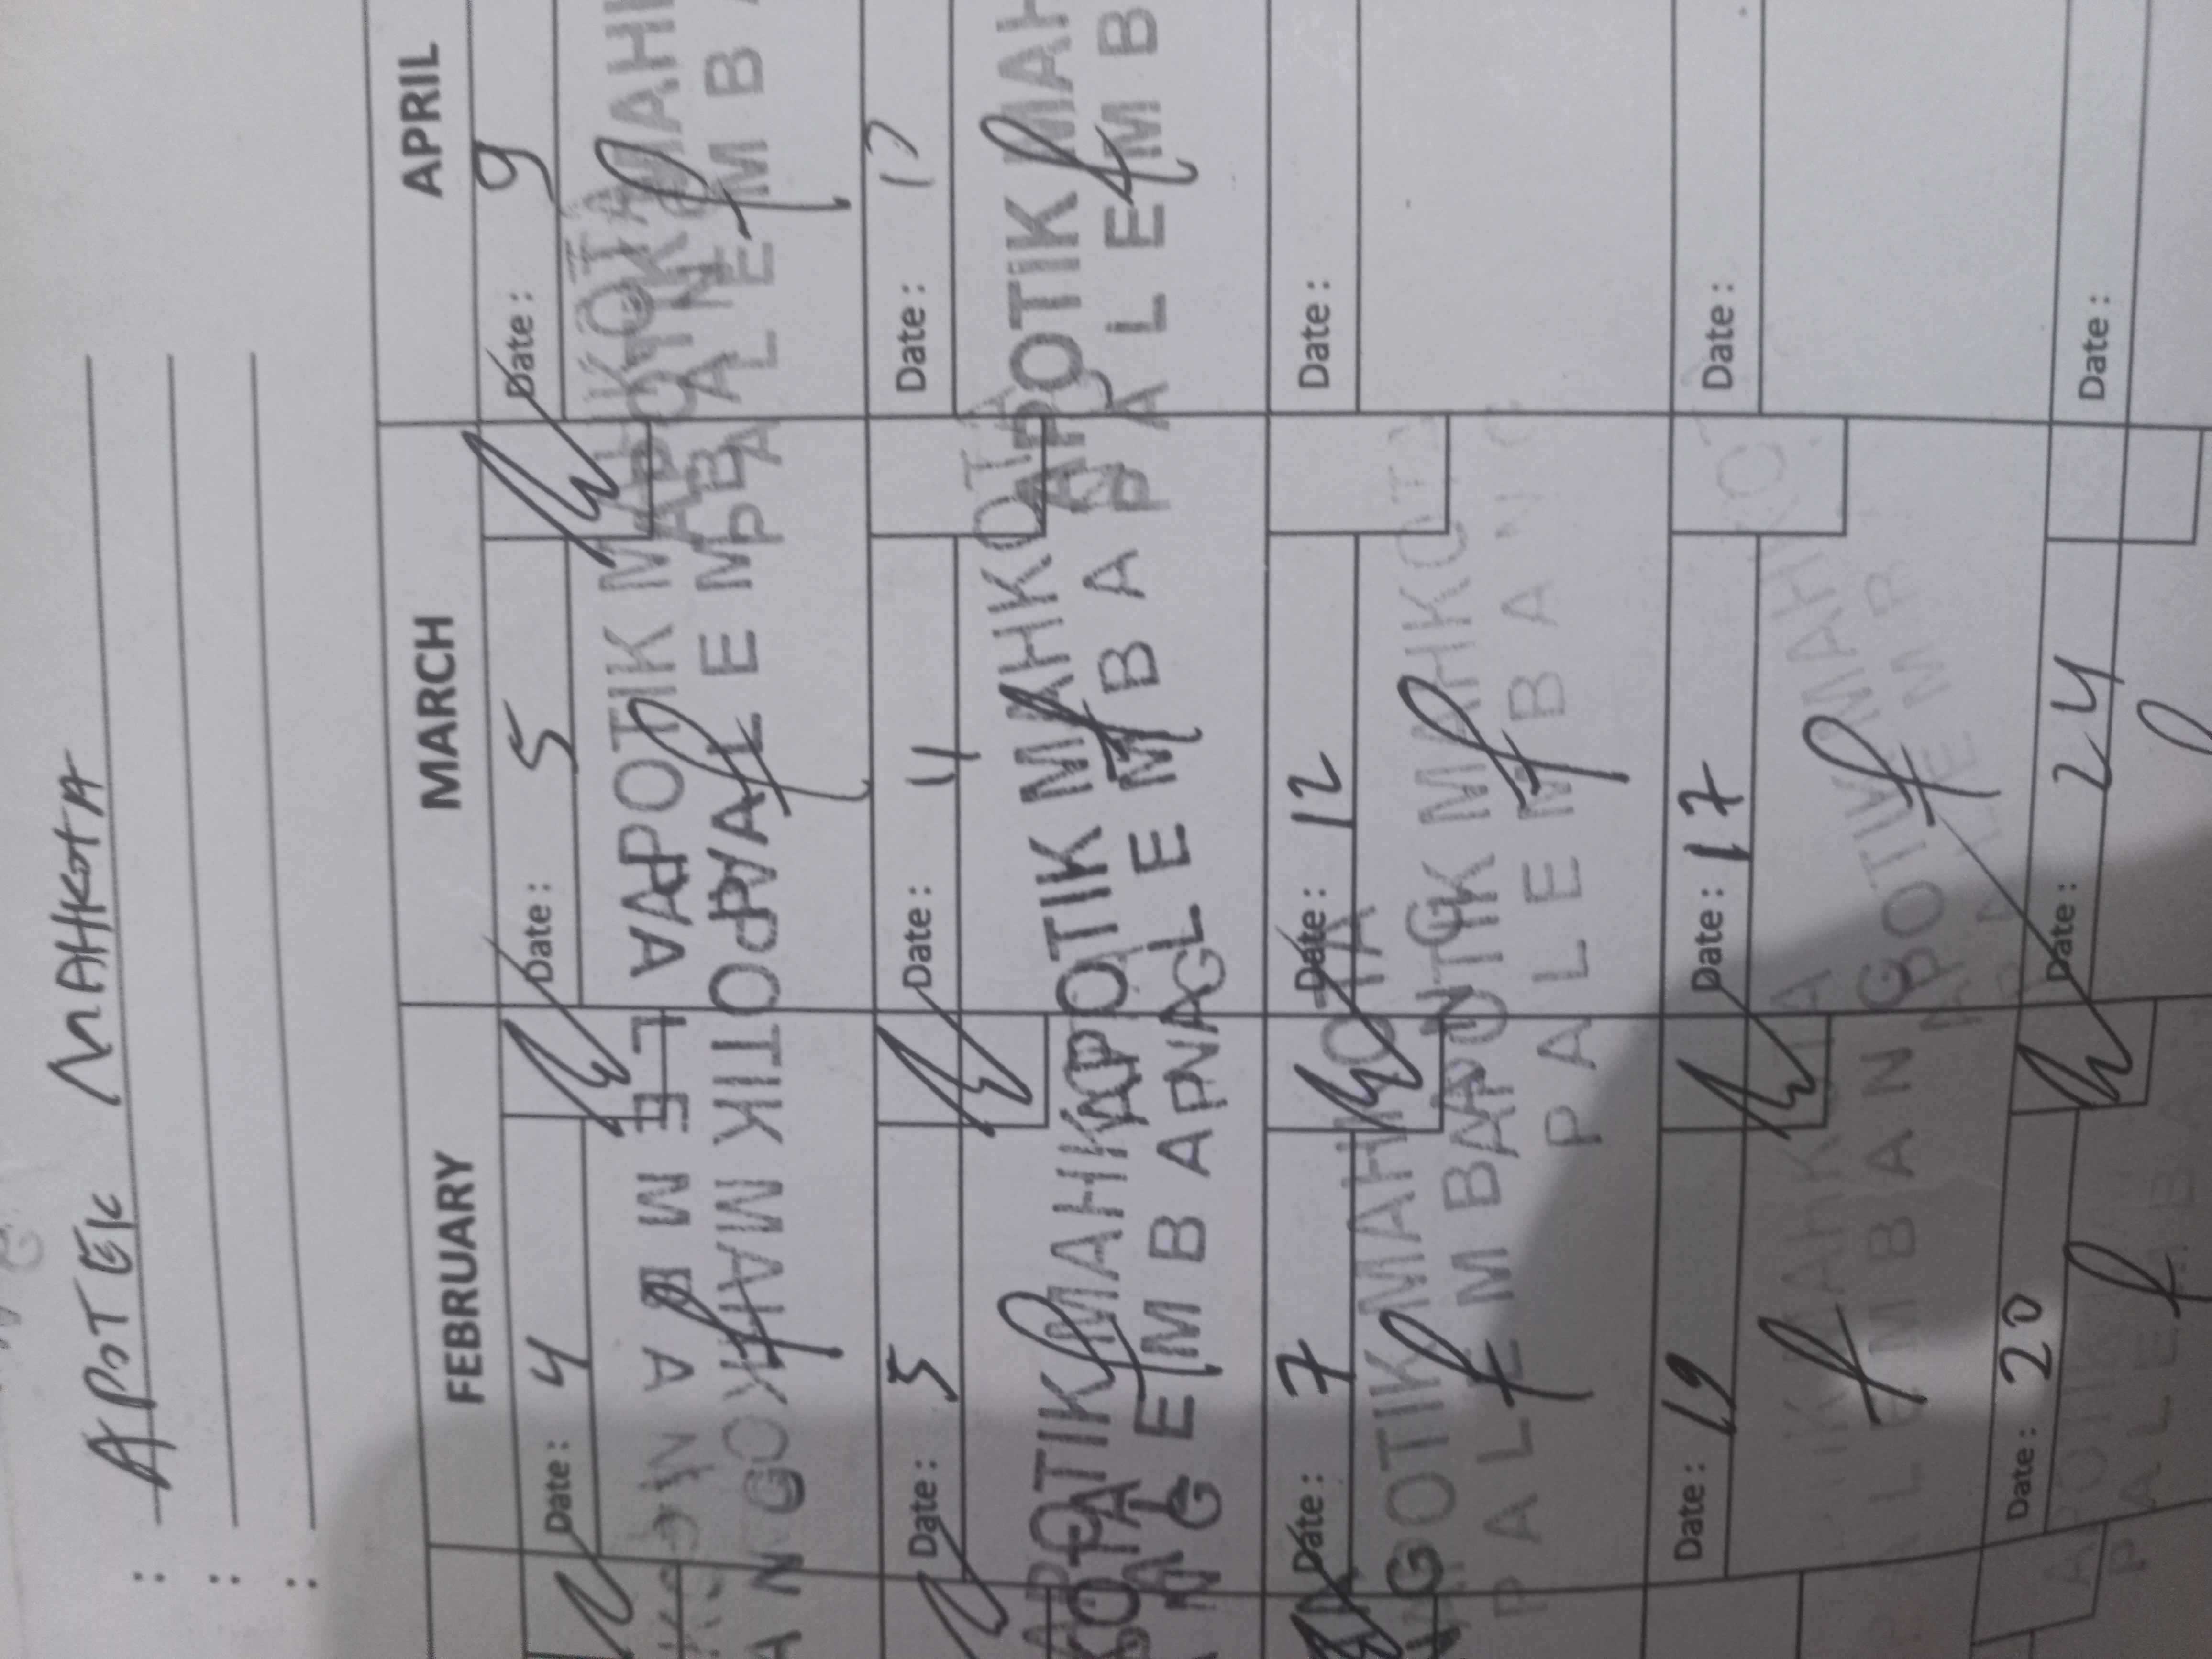 : APOTEK MAHKOTA
:
:
FEBRUARY MARCH APRIL
Date : 4 Date : 5 Date : 9
PALEMBANG APOTIK MAHKOTA
APOTIK MAHKOTA PALEMBANG APOTIK MAH
PALEMB
Date : 5 Date : 11 Date :
APOTIK MAHKOTA APOTIK MAHKOTA APOTIK MAH
PALEMBANG PALEMBA PALEMB
Date : 7 Date : 12 Date :
APOTIK MAHKOTA APOTIK MAHKOTA
PALEMBANG PALEMBANG
Date : 19 Date : 17 Date :
MAHKOTA APOTIK MAHKOT
PALEMBANG PALEMB
Date : 20 Date : 24 Date :
APOTIK
PALEMBA